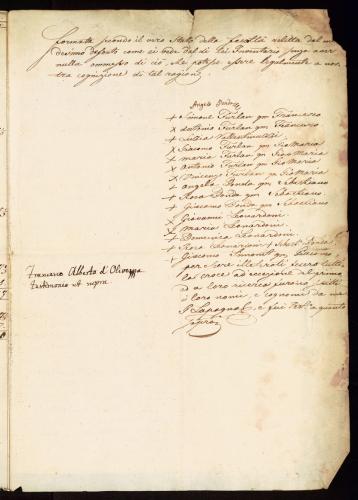 formata secondo il vero Stato della facoltà relitta dal me
desimo defonto come si vede dal di lui Inventario senza aver
nulla ommesso di ciò, che potesse essere legalmente a nos
tra cognizione di tal ragione
Angelo
+ Simone Furlan qm Francesco
x Antonio Furlan qm Francesco
+ Lucia
x Giacomo Furlan qm Gio Maria
x Maria Furlan qm Gio Maria
x Antonio Furlan qm Gio Maria
x Vincenzo Furlan qm Gio Maria
+ Angela Donda qm Sebastiano
+ Rosa Donda qm Sebastiano
+ Giacomo Donda qm Sebastiano
x Giovanni Leonardoni
x Maria Leonardoni
+ Domenica Leonardoni
+ Rosa Leonardoni
+ Giacomo Simonet qm Giacomo
per Sore illeterati fecero tutti
la croce ad eccezione del primo
ed a loro ricerca furono scritti
i loro nomi, e cognomi da me
P. Lapagna
Francesco Alberto d'Olivezza
testimonio ut supra